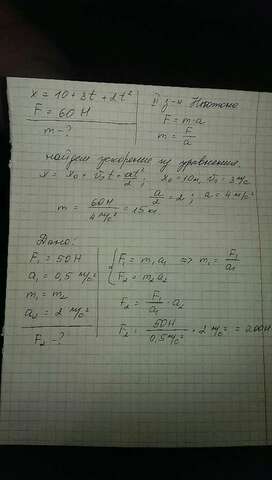 x = 10 + 3t + 2t²
F = 60 Н
m - ?
II з-н Ньютона
F = m·a
m = F/a
найдем ускорение из уравнения.
x = x₀ + v₀t + at²/2 ; x₀ = 10м, v₀ = 3 м/с
a/2 = 2 ; a = 4 м/с²
m = 60Н / 4 м/с² = 15 кг
Дано:
F₁ = 50Н
a₁ = 0,5 м/с²
m₁ = m₂
a₂ = 2 м/с²
F₂ - ?
F₁ = m₁a₁ => m₁ = F₁/a₁
F₂ = m₂a₂
F₂ = F₁/a₁ · a₂
F₂ = 50Н / 0,5 м/с² · 2 м/с² = 200Н